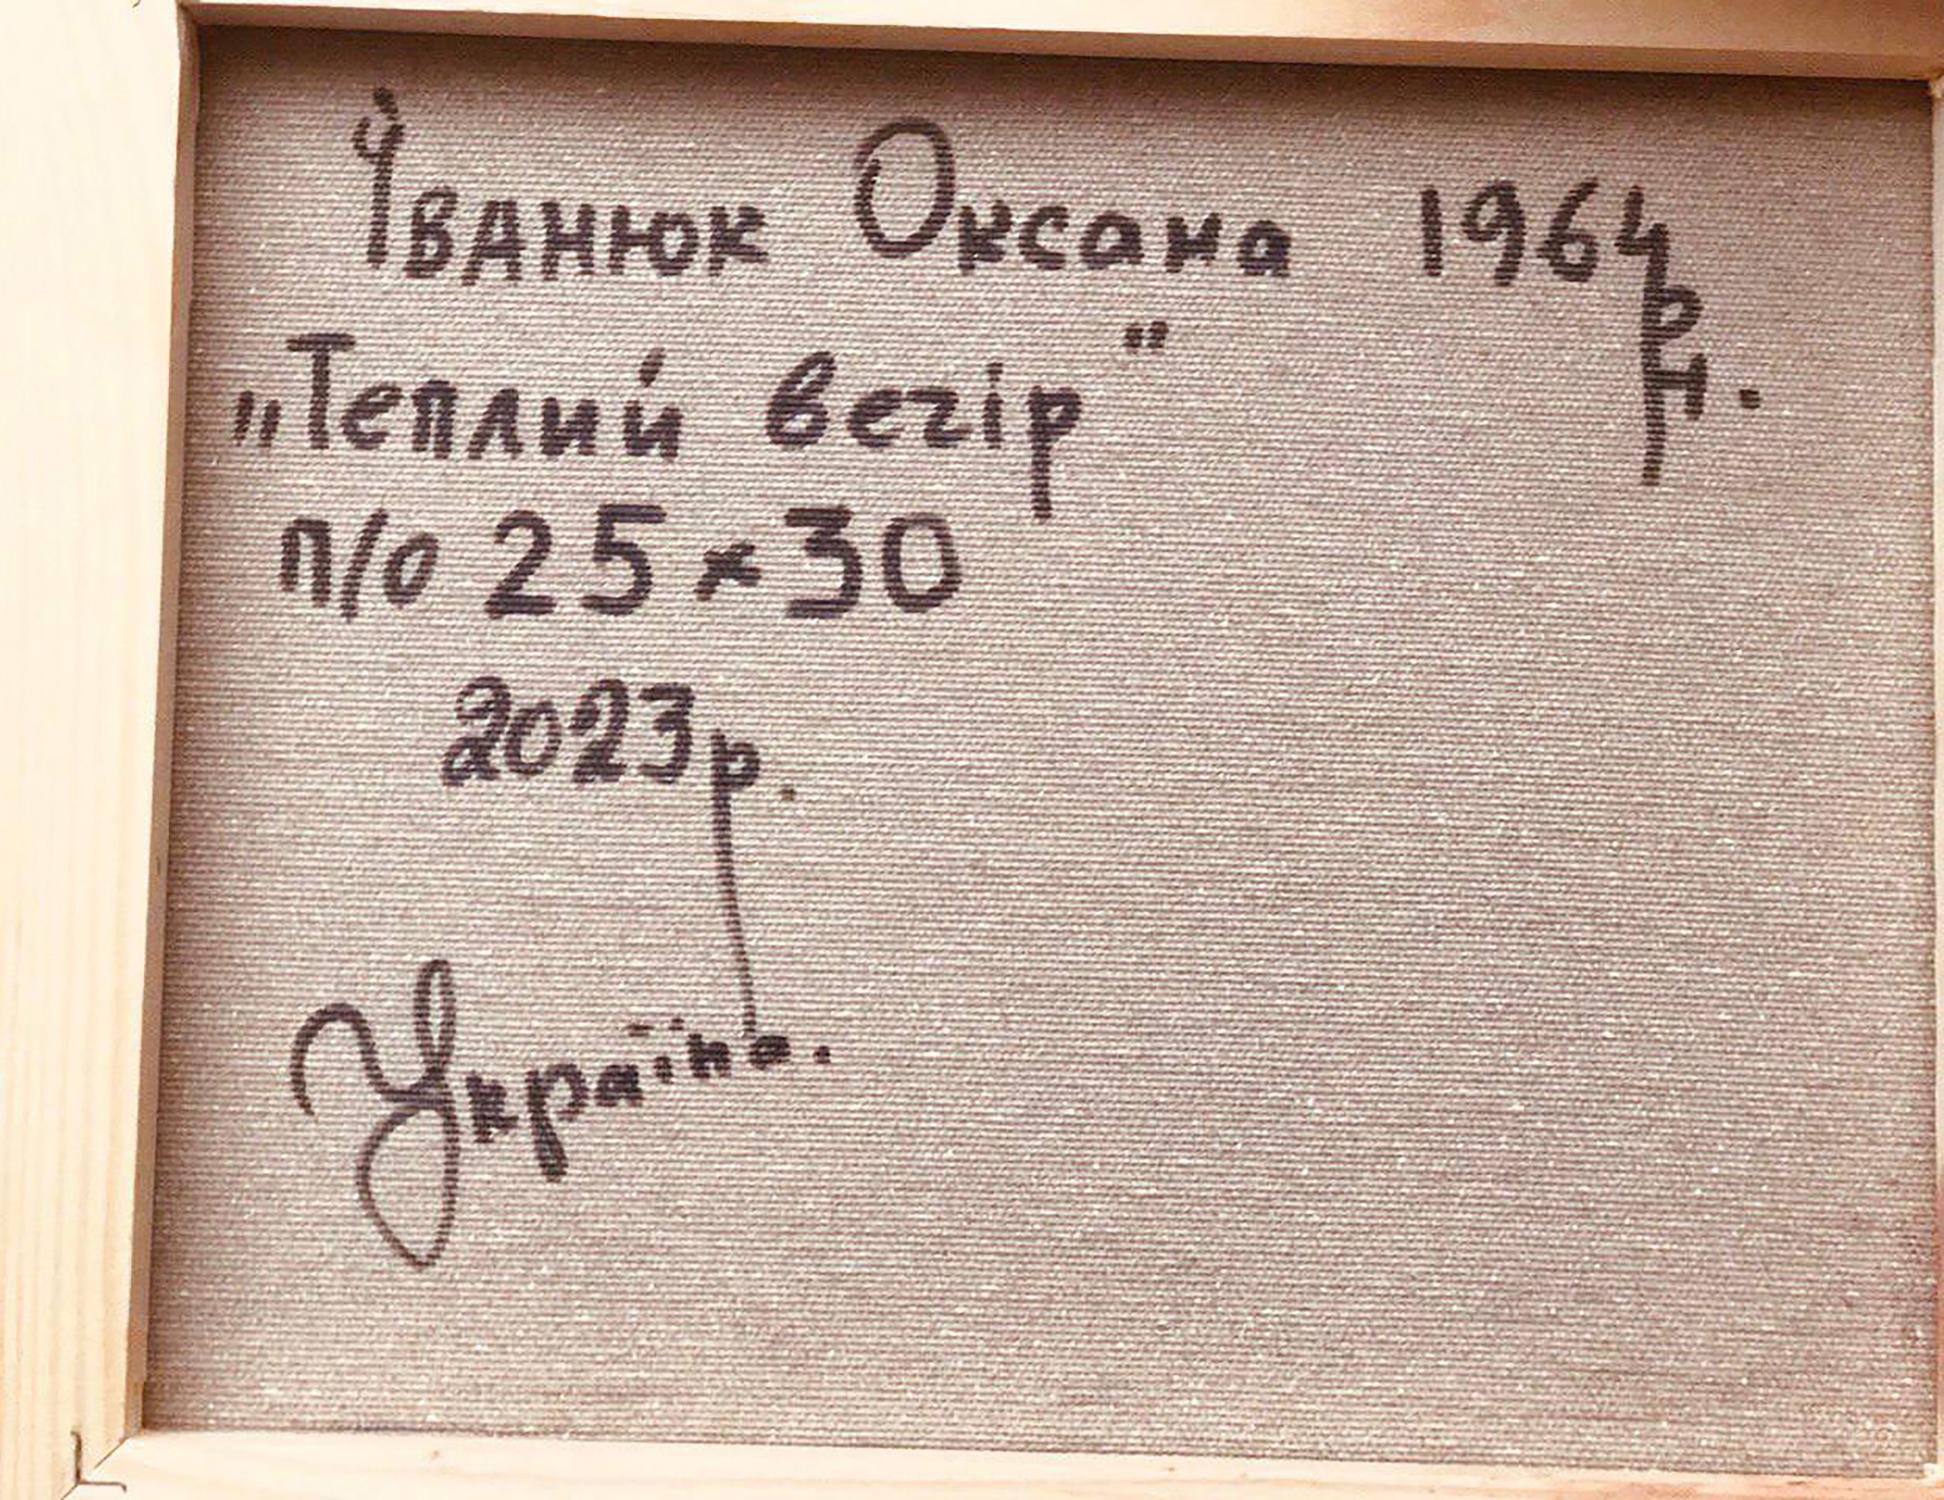 Іванюк Оксана 1964 р.н.
„Теплий вечір"
п/о 25 × 30
2023р.
Україна.